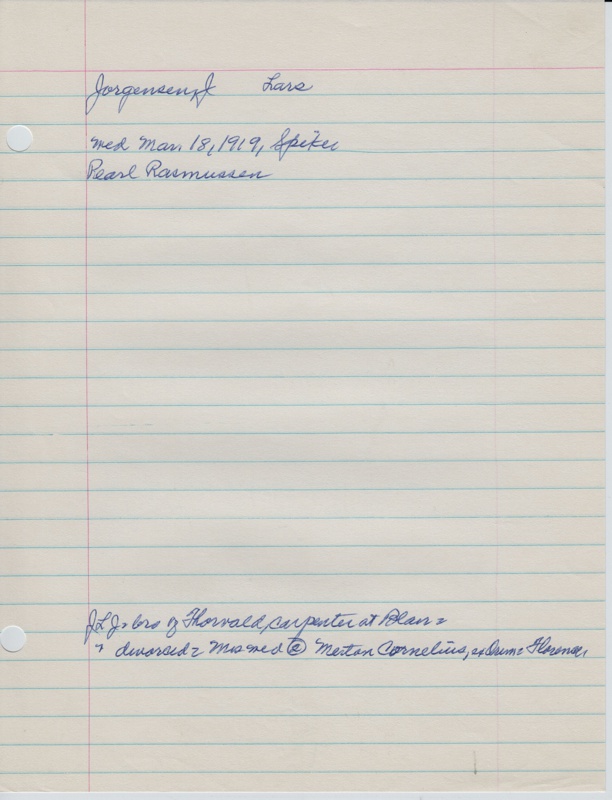 Jorgensen, J Lars
Wed Mar. 18, 1919, Spiker
Pearl Rasmussen
JLJ = bro of Thorvald, carpenter at Blair =
" divorsed = Mrs wed @ Merton Cornelius, Orum = Florence,